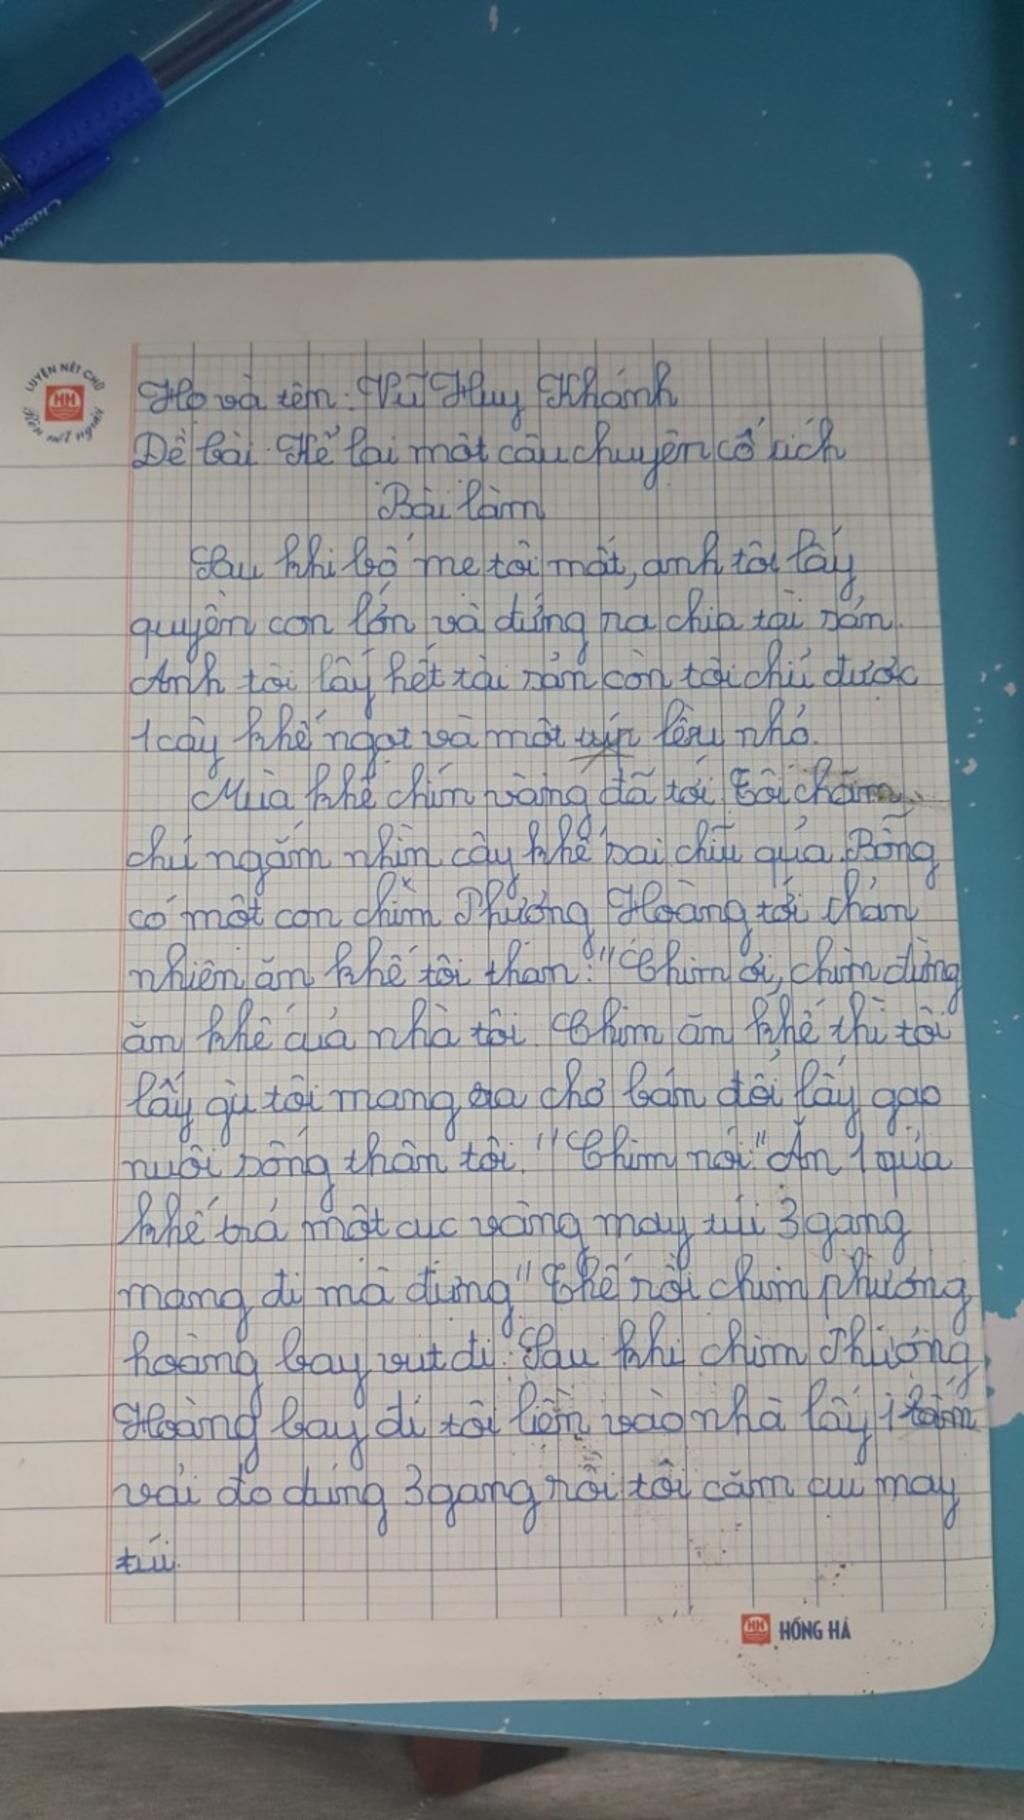 LUYỆN NÉT CHỮ
HH
Rèn nết người
Họ và tên: Vũ Huy Khánh
Đề bài: Kể lại một câu chuyện cổ tích
Bài làm
Sau khi bố mẹ tôi mất, anh tôi lấy
quyền con lớn và đứng ra chia tài sản.
Anh tôi lấy hết tài sản còn tôi chỉ được
1 cây khế ngọt và một túp lều nhỏ.
Mùa khế chín vàng đã tới. Tôi chăm
chú ngắm nhìn cây khế sai chĩu quả. Bỗng
có một con chim Phượng Hoàng tới thản
nhiên ăn khế tôi than: "Chim ơi, chim đừng
ăn khế quả nhà tôi. Chim ăn khế thì tôi
lấy gì tôi mang ra chợ bán đổi lấy gạo
nuôi sống thân tôi." Chim nói "Ăn 1 quả
khế trả một cục vàng may túi 3 gang
mang đi mà đựng" Thế rồi chim phượng
hoàng bay vụt đi. Sau khi chim Phượng
Hoàng bay đi tôi liền vào nhà lấy 1 tấm
vải đo đúng 3 gang rồi tôi cặm cụi may
túi.
HH HỒNG HÀ